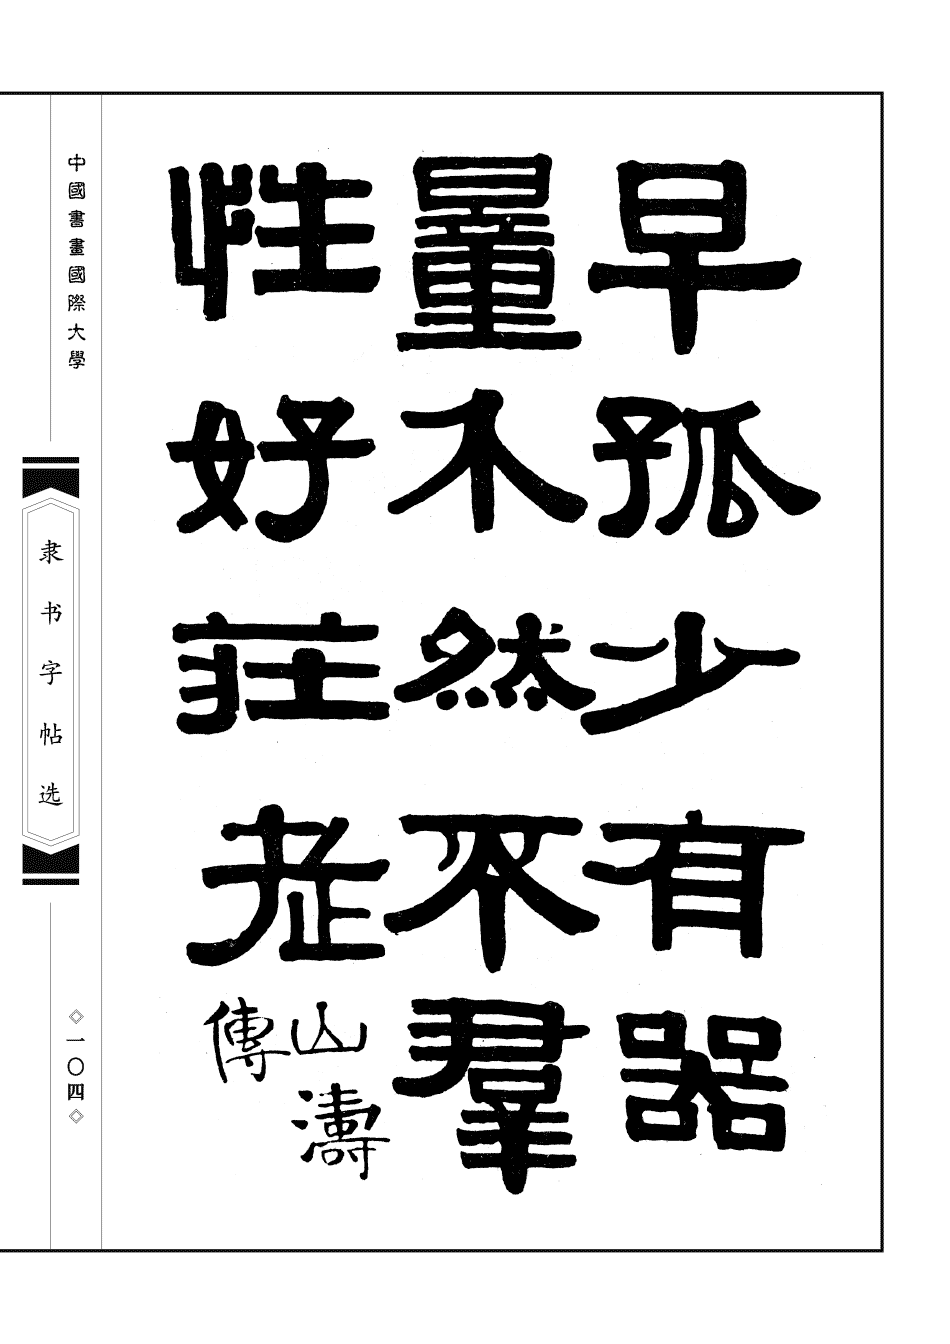 早孤少有器
量介然不羣
性好莊老
山濤
傳
中國書畫國際大學
隶书字帖选
◇一〇四◇